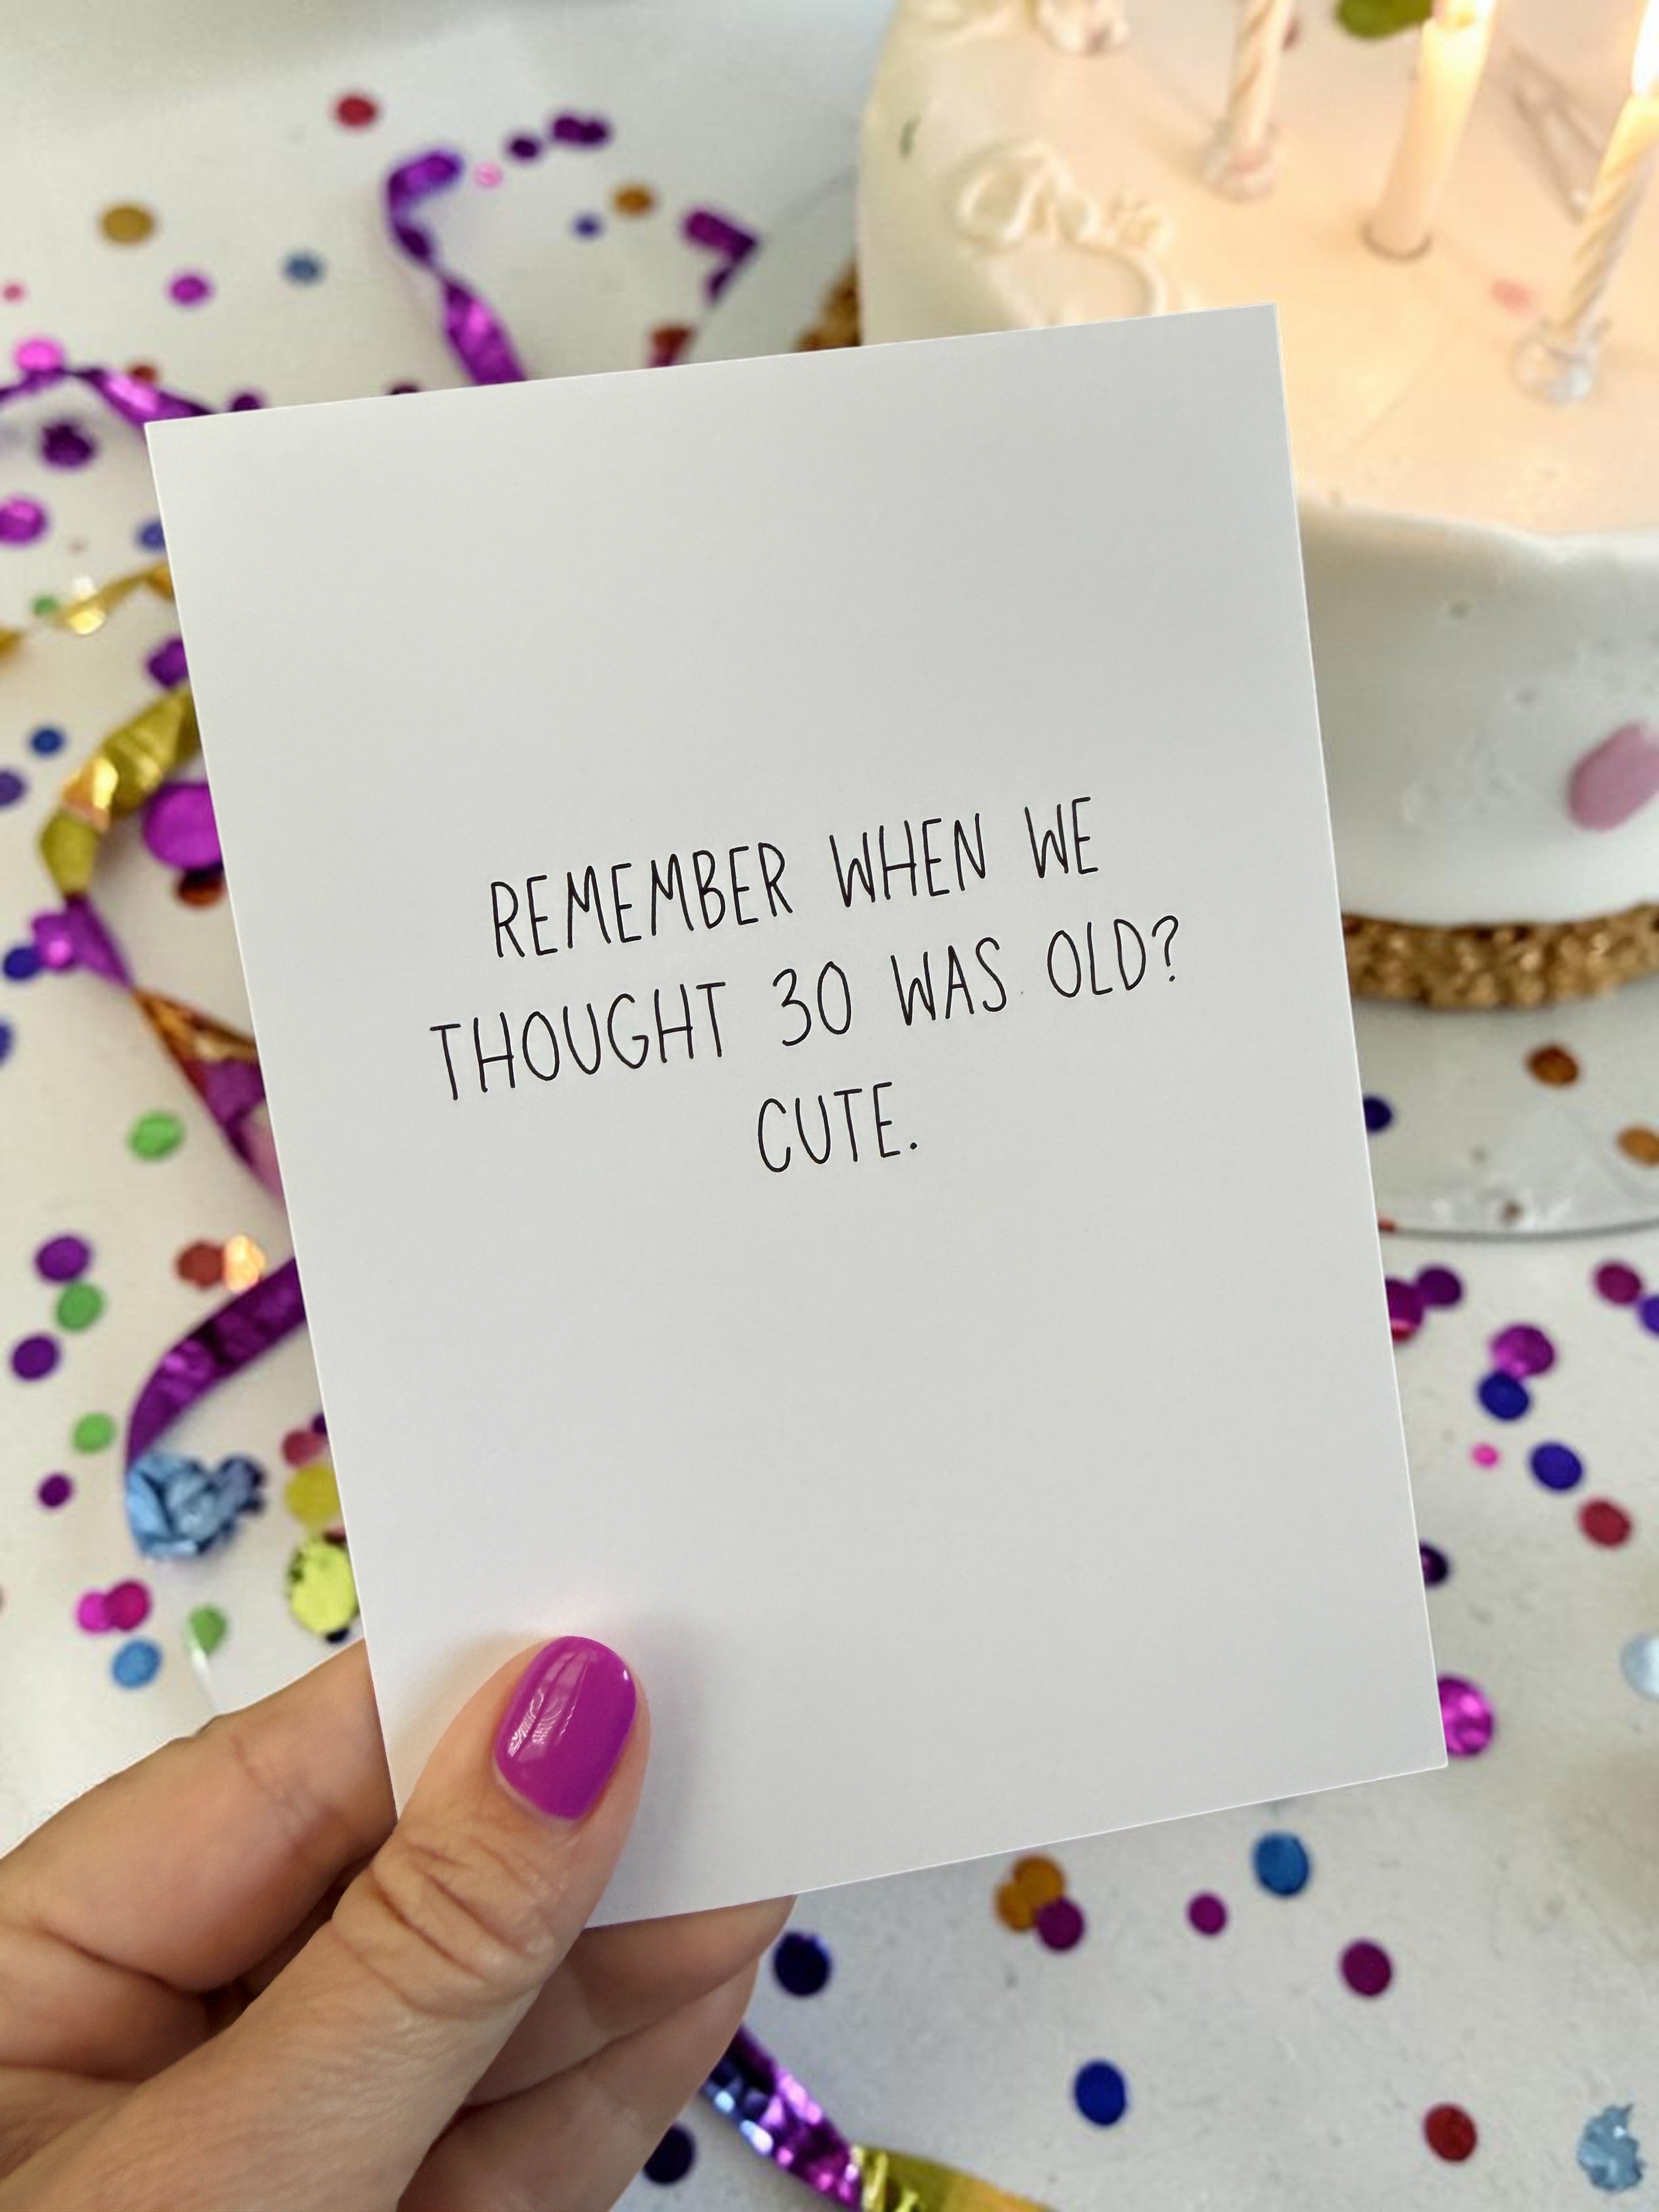 REMEMBER WHEN WE
THOUGHT 30 WAS OLD?
CUTE.